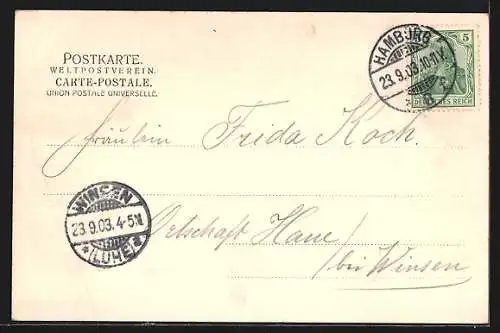 POSTKARTE.
WELTPOSTVEREIN.
CARTE-POSTALE.
UNION POSTALE UNIVERSELLE.
HAMBURG
23.9.03.10-11V.
5
DEUTSCHES REICH
Fräulein Frida Koch.
WINSEN
23.9.03.4-5N
*(LUHE)*
Ortschaft Haue/
bei Winsen